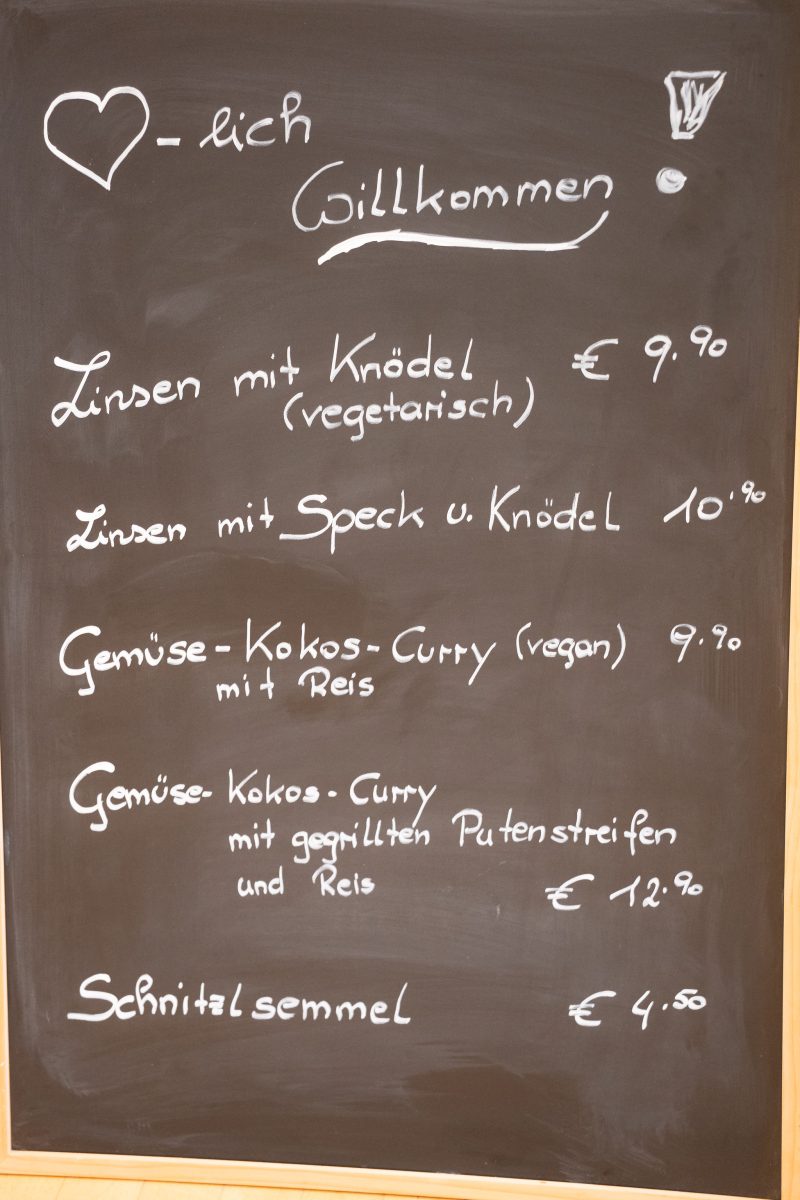 - lich
Willkommen !
Linsen mit Knödel € 9.90
(vegetarisch)
Linsen mit Speck u. Knödel 10.90
Gemüse-Kokos-Curry (vegan) 9.90
mit Reis
Gemüse-Kokos-Curry
mit gegrillten Putenstreifen
und Reis € 12.90
Schnitzlsemmel € 4.50